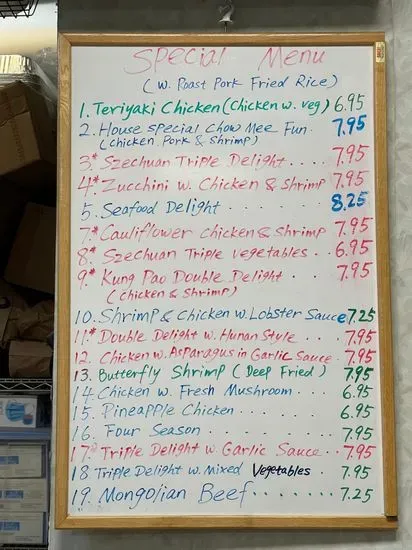 Special Menu
(W. Roast Pork Fried Rice)
1. Teriyaki Chicken (Chicken w. veg) 6.95
2. House special Chow Mee Fun. 7.95
(Chicken, Pork & Shrimp)
3.* Szechuan Triple Delight .... 7.95
4.* Zucchini w. Chicken & Shrimp 7.95
5. Seafood Delight ..... 8.25
7.* Cauliflower chicken & shrimp 7.95
8.* Szechuan Triple vegetables .. 6.95
9.* Kung Pao Double Delight .. 7.95
(Chicken & Shrimp)
10. Shrimp & Chicken w. Lobster Sauce 7.25
11.* Double Delight w. Hunan Style .. 7.95
12. Chicken w. Asparagus in Garlic Sauce. 7.95
13. Butterfly Shrimp (Deep Fried) 7.95
14. Chicken w. Fresh Mushroom .... 6.95
15. Pineapple Chicken ...... 6.95
16. Four Season ....... 7.95
17.* Triple Delight w. Garlic Sauce... 7.95
18. Triple Delight w. Mixed Vegetables. 7.95
19. Mongolian Beef ....... 7.25